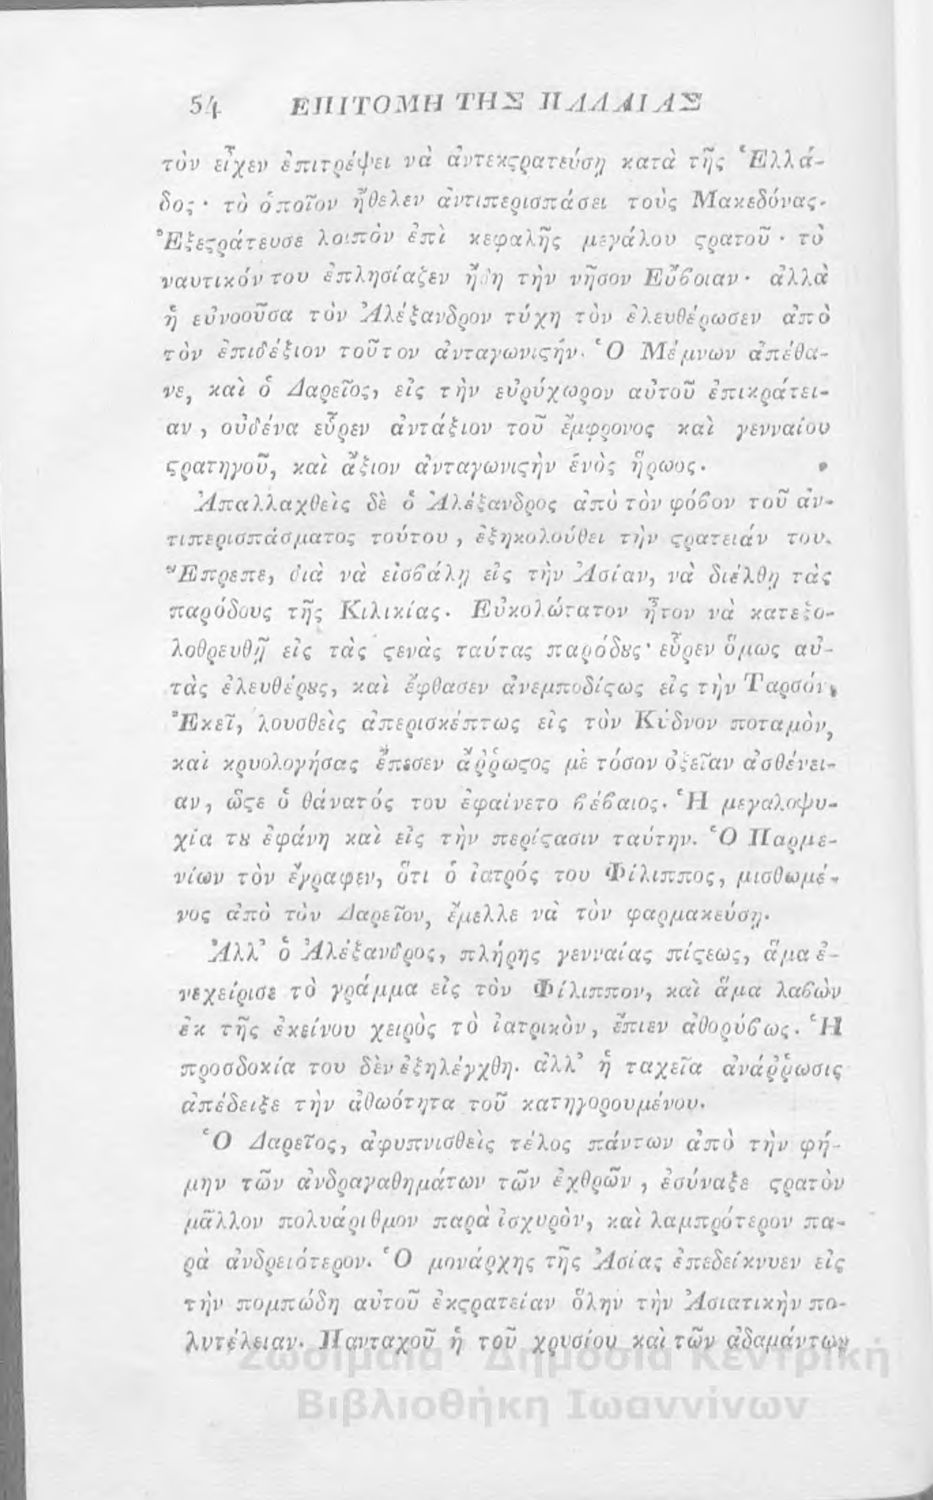 54 ΕΠΙΤΟΜΗ ΤΗΣ ΠΑΛΑΙΑΣ
τὸν εἶχεν ἐπιτρέψει νὰ ἀντεκϛρατεύσῃ κατὰ τῆς Ἑλλά-
δος· τὸ ὁποῖον ἤθελεν ἀντιπερισπάσει τοὺς Μακεδόνας.
Ἐξεϛράτευσε λοιπὸν ἐπὶ κεφαλῆς μεγάλου ϛρατοῦ· τὸ
ναυτικόν του ἐπλησίαζεν ἤδη τὴν νῆσον Εὔβοιαν· ἀλλὰ
ἡ εὐνοοῦσα τὸν Ἀλέξανδρον τύχη τὸν ἐλευθέρωσεν ἀπὸ
τὸν ἐπιδέξιον τοῦτον ἀνταγωνιϛήν. Ὁ Μέμνων ἀπέθα-
νε, καὶ ὁ Δαρεῖος, εἰς τὴν εὐρύχωρον αὐτοῦ ἐπικράτει-
αν, οὐδένα εὗρεν ἀντάξιον τοῦ ἔμφρονος καὶ γενναίου
ϛρατηγοῦ, καὶ ἄξιον ἀνταγωνιϛὴν ἑνὸς ἥρωος.
Ἀπαλλαχθεὶς δὲ ὁ Ἀλέξανδρος ἀπὸ τὸν φόβον τοῦ ἀν-
τιπερισπάσματος τούτου, ἐξηκολούθει τὴν ϛρατειάν του.
Ἔπρεπε, διὰ νὰ εἰσβάλῃ εἰς τὴν Ἀσίαν, νὰ διέλθῃ τὰς
παρόδους τῆς Κιλικίας. Εὐκολώτατον ἦτον νὰ κατεξο-
λοθρευθῇ εἰς τὰς ϛενὰς ταύτας παρόδȣς· εὗρεν ὅμως αὐ-
τὰς ἐλευθέρȣς, καὶ ἔφθασεν ἀνεμποδίϛως εἰς τὴν Ταρσόν,
Ἐκεῖ, λουσθεὶς ἀπερισκέπτως εἰς τὸν Κύδνον ποταμὸν,
καὶ κρυολογήσας ἔπεσεν ἄῤῥωϛος μὲ τόσον ὀξεῖαν ἀσθένει-
αν, ὥϛε ὁ θάνατός του ἐφαίνετο βέβαιος. Ἡ μεγαλοψυ-
χία τȣ ἐφάνη καὶ εἰς τὴν περίϛασιν ταύτην. Ὁ Παρμε-
νίων τὸν ἔγραφεν, ὅτι ὁ ἰατρός του Φίλιππος, μισθωμέ-
νος ἀπὸ τὸν Δαρεῖον, ἔμελλε νὰ τὸν φαρμακεύσῃ.
Ἀλλ' ὁ Ἀλέξανδρος, πλήρης γενναίας πίϛεως, ἅμα ἐ-
νεχείρισε τὸ γράμμα εἰς τὸν Φίλιππον, καὶ ἅμα λαβὼν
ἐκ τῆς ἐκείνου χειρὸς τὸ ἰατρικὸν, ἔπιεν ἀθορύβως. Ἡ
προσδοκία του δὲν ἐξηλέγχθη. ἀλλ' ἡ ταχεῖα ἀνάῤῥωσις
ἀπέδειξε τὴν ἀθωότητα τοῦ κατηγορουμένου.
Ὁ Δαρεῖος, ἀφυπνισθεὶς τέλος πάντων ἀπὸ τὴν φή-
μην τῶν ἀνδραγαθημάτων τῶν ἐχθρῶν, ἐσύναξε ϛρατὸν
μᾶλλον πολυάριθμον παρὰ ἰσχυρὸν, καὶ λαμπρότερον πα-
ρὰ ἀνδρειότερον. Ὁ μονάρχης τῆς Ἀσίας ἐπεδείκνυεν εἰς
τὴν πομπώδη αὐτοῦ ἐκϛρατείαν ὅλην τὴν Ἀσιατικὴν πο-
λυτέλειαν. Πανταχοῦ ἡ τοῦ χρυσίου καὶ τῶν ἀδαμάντων
Ζωσιμαία Δημόσια Κεντρική
Βιβλιοθήκη Ιωαννίνων